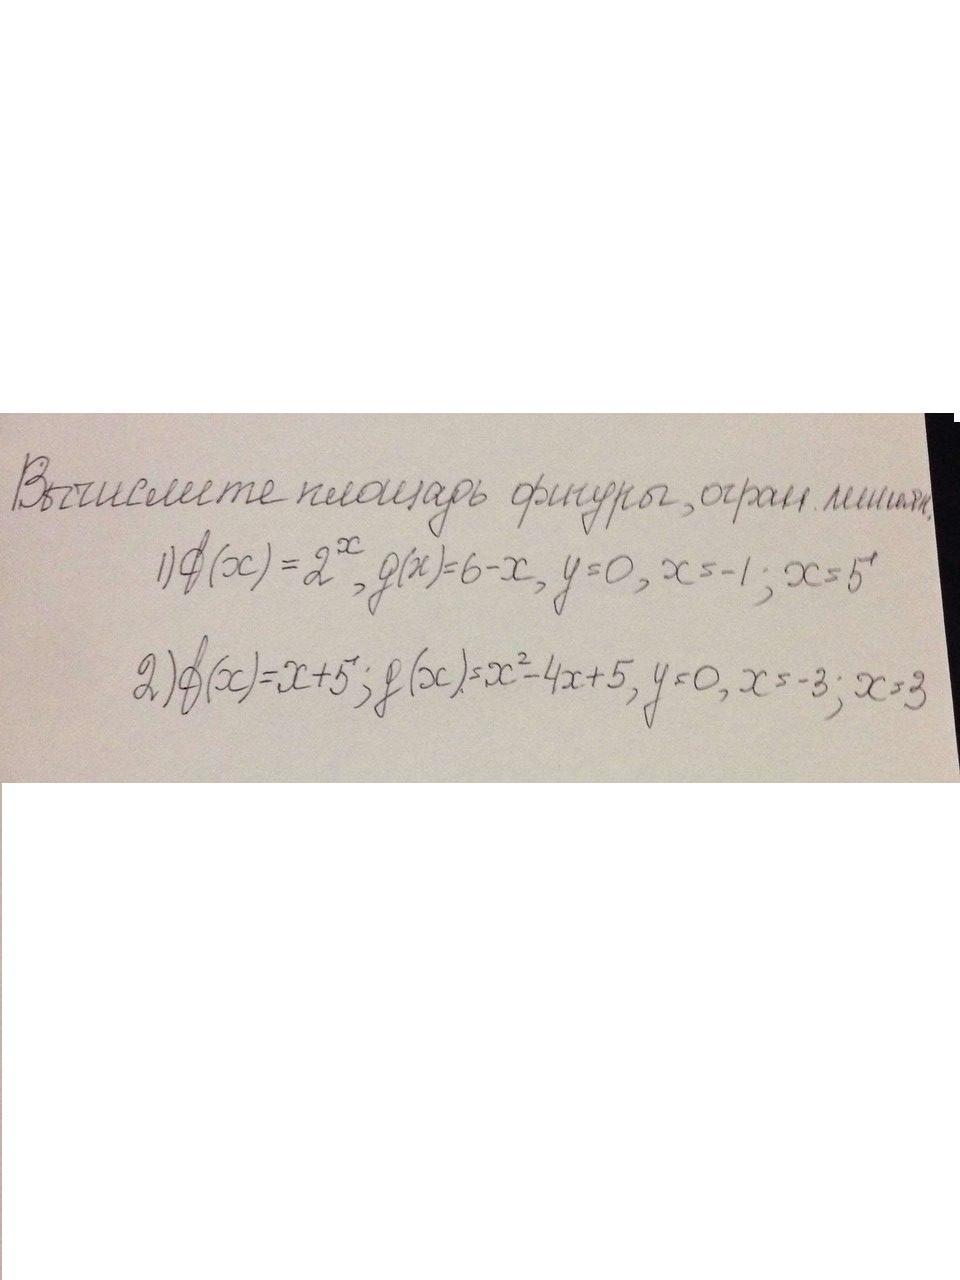 Вычислите площадь фигуры, огран. линиям.
1) f(x) = 2^x, g(x)=6-x, y=0, x=-1; x=5
2) f(x)=x+5; g(x)=x²-4x+5, y=0, x=-3; x=3